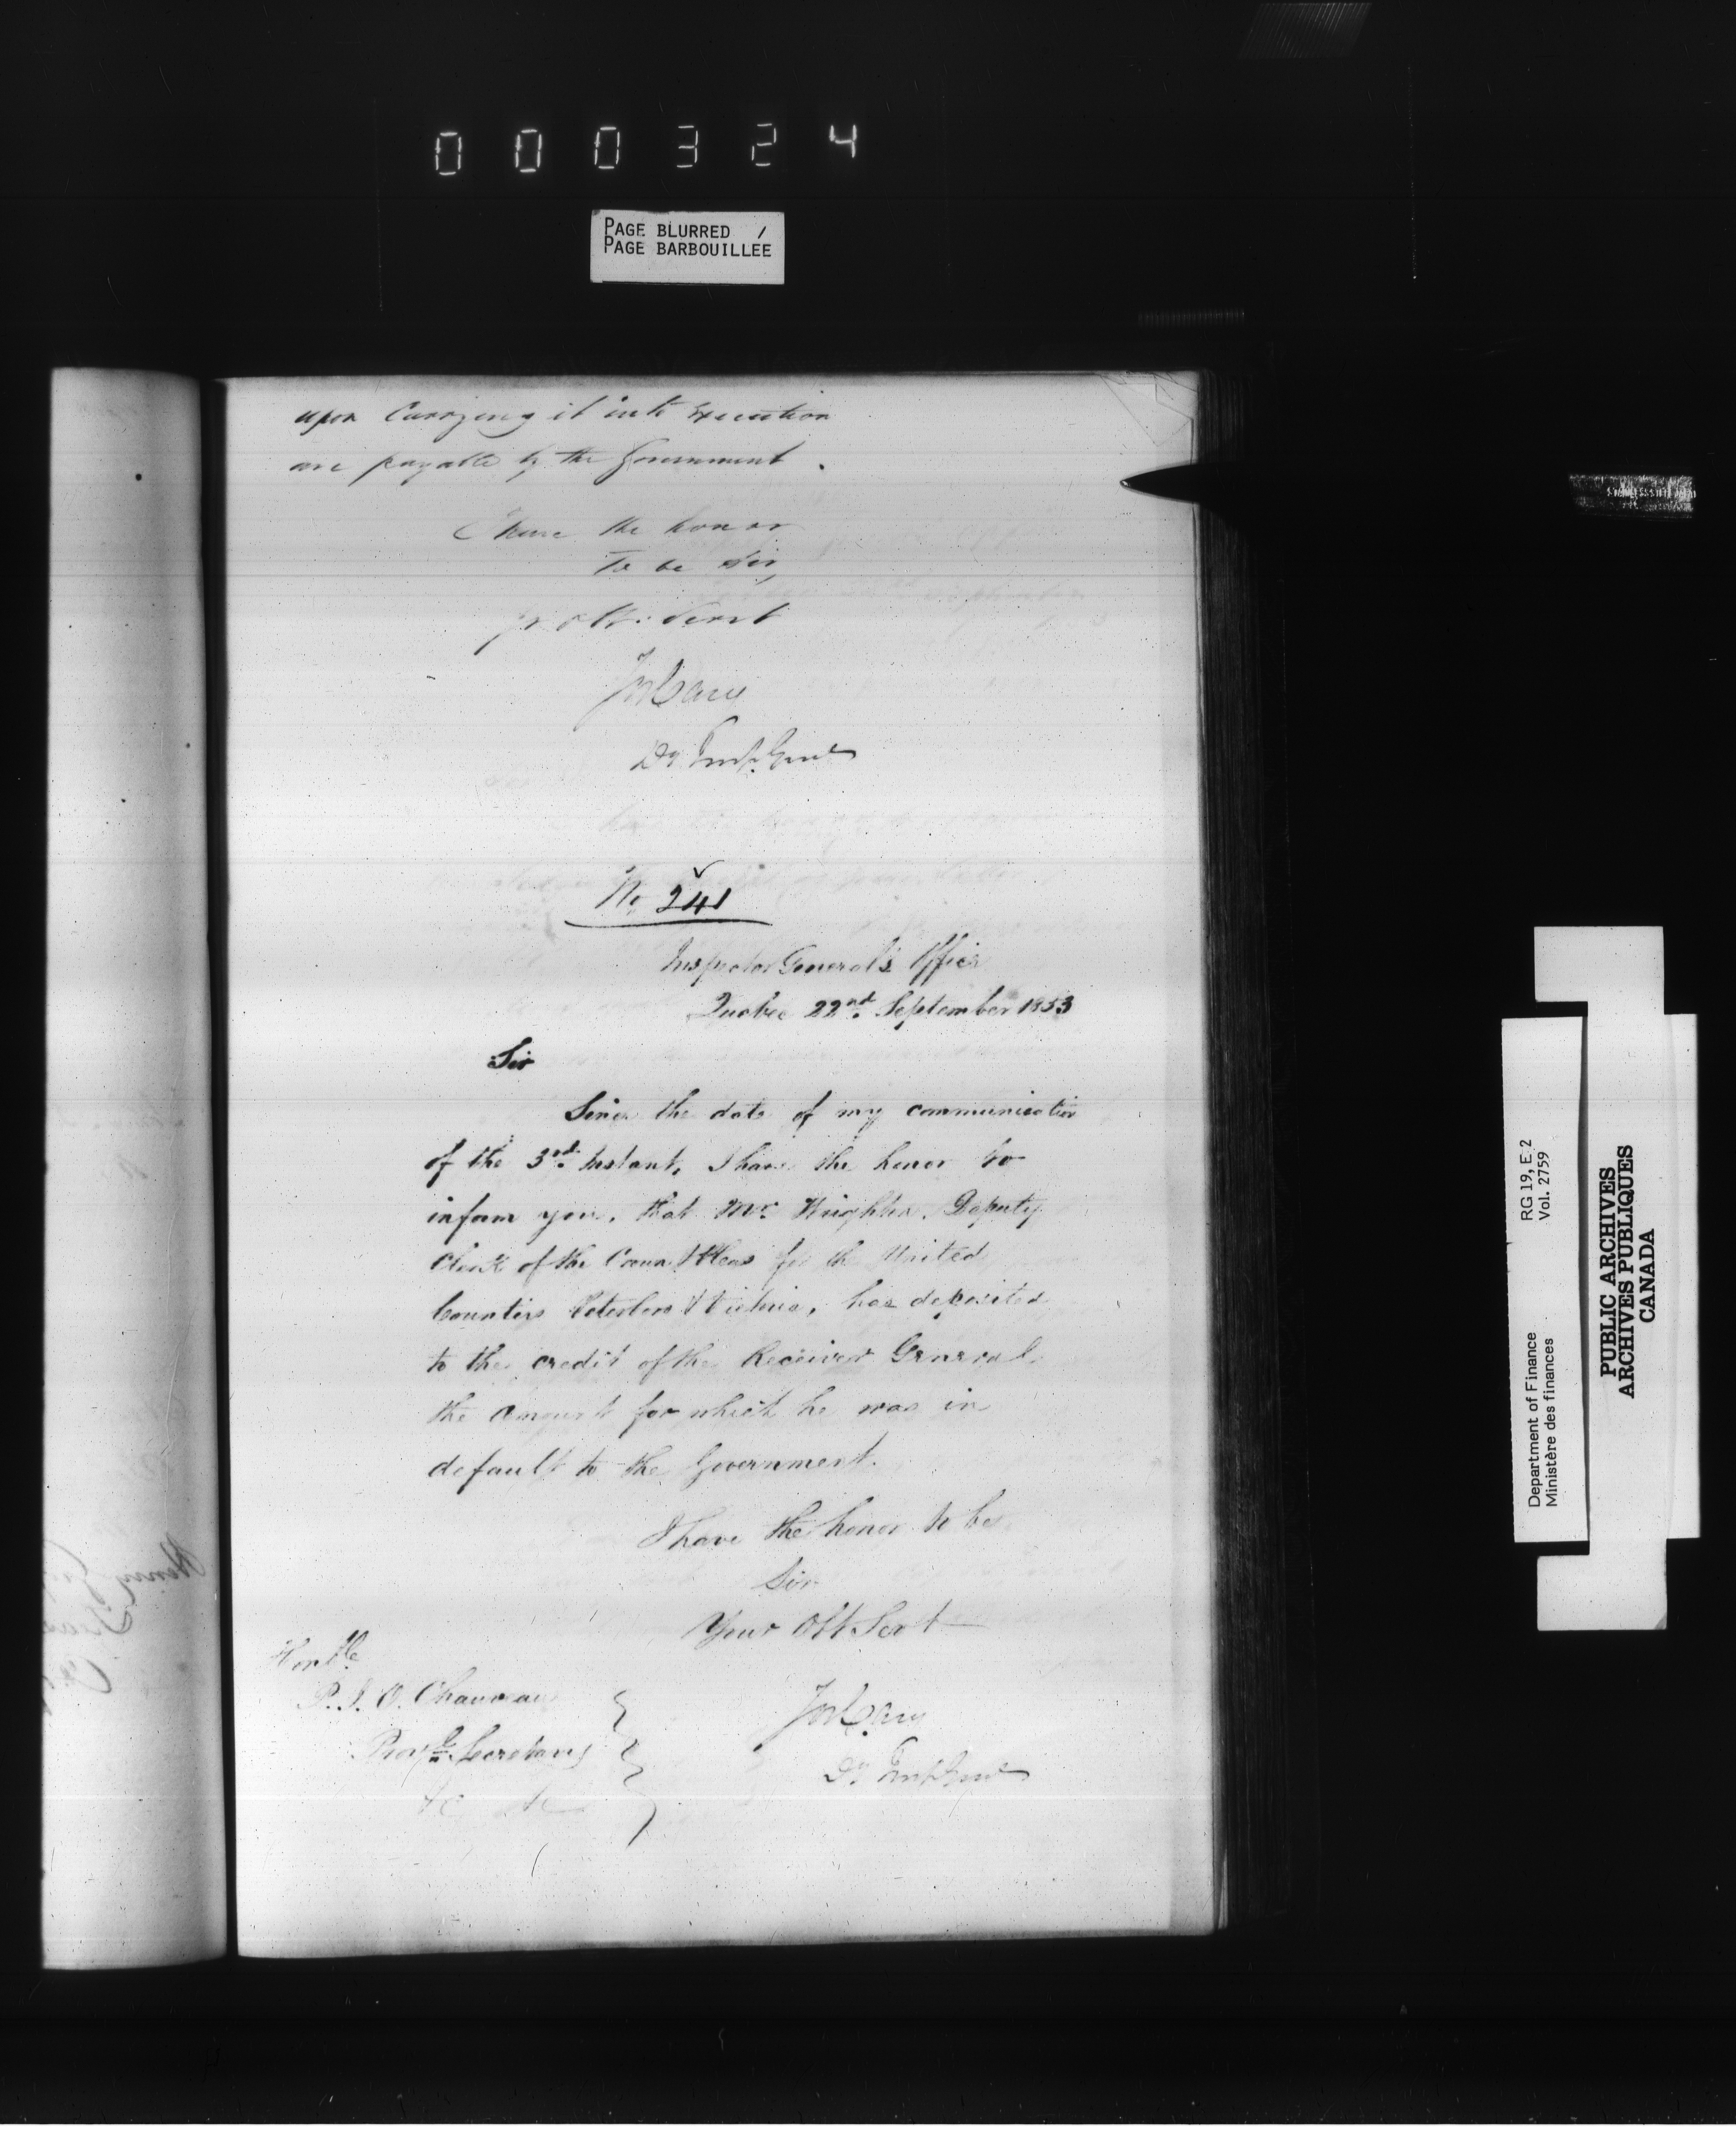 000324
PAGE BLURRED /
PAGE BARBOUILLÉE
upon Carrying it into Execution
are payable by the Government.
I have the honor
To be Sir,
yr obt. Servt
Jos Cary
Dy Insp. Genl
No 241
Inspector General's Office
Quebec 22nd September 1853
Sir
Since the date of my communication
of the 3rd Instant, I have the honor to
inform you, that Mr. Deputy
Clerk of the Crown & Pleas for the United
Counties Peterboro & Victoria, has deposited
to the credit of the Receiver General
the amount for which he was in
default to the Government.
I have the honor to be
Sir
Your Obt Servt
Honble
P. J. O. Chauveau
Provl. Secretary
&c &c
Jos Cary
Dy Insp Genl
RG 19, E 2
Vol. 2759
Department of Finance
Ministère des finances
PUBLIC ARCHIVES
ARCHIVES PUBLIQUES
CANADA